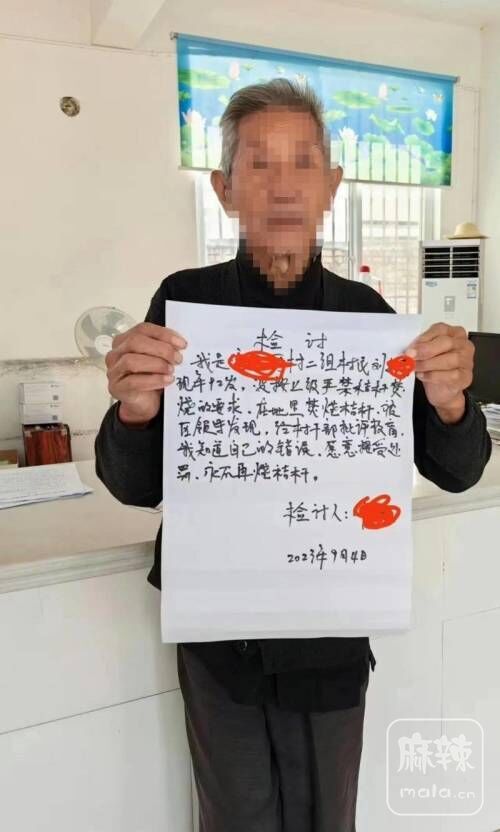 检 讨
我是 村二组村民刘
现年92岁，没按上级严禁秸秆焚
烧的要求，在地里焚烧秸秆，被
区领导发现，给村干部批评教育，
我知道自己的错误，愿意接受处
罚，永不再烧秸秆。
检讨人：
2023年9月4日
麻辣
mala.cn